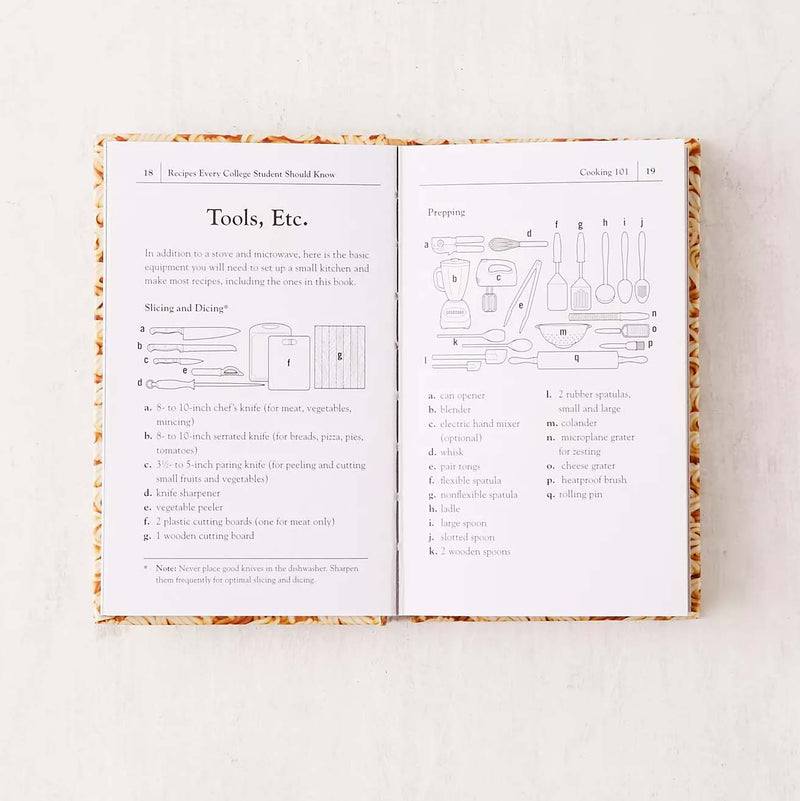 18 Recipes Every College Student Should Know
Tools, Etc.
In addition to a stove and microwave, here is the basic
equipment you will need to set up a small kitchen and
make most recipes, including the ones in this book.
Slicing and Dicing*
a
b
c
e
d
f
g
a. 8- to 10-inch chef's knife (for meat, vegetables,
mincing)
b. 8- to 10-inch serrated knife (for breads, pizza, pies,
tomatoes)
c. 3½- to 5-inch paring knife (for peeling and cutting
small fruits and vegetables)
d. knife sharpener
e. vegetable peeler
f. 2 plastic cutting boards (one for meat only)
g. 1 wooden cutting board
* Note: Never place good knives in the dishwasher. Sharpen
them frequently for optimal slicing and dicing.
Cooking 101 19
Prepping
a
d
f
g
h
i
j
b
c
e
k
l
m
n
o
p
q
a. can opener
b. blender
c. electric hand mixer
(optional)
d. whisk
e. pair tongs
f. flexible spatula
g. nonflexible spatula
h. ladle
i. large spoon
j. slotted spoon
k. 2 wooden spoons
l. 2 rubber spatulas,
small and large
m. colander
n. microplane grater
for zesting
o. cheese grater
p. heatproof brush
q. rolling pin